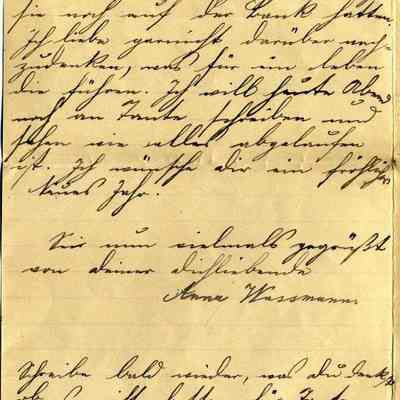 sie noch auf der Bank hatten
Ich liebe garnicht darüber nach-
zudenken, was für ein leben
die führen. Ich will heute Abend
noch an Tante schreiben und
sehen wie alles abgelaufen
ist. Ich wünsche dir ein fröhliches
Neues Jahr.
Sei nun vielmals gegrüßt
von deiner dichliebende
Anna Wassmann
Schreibe bald wieder, was du denkst